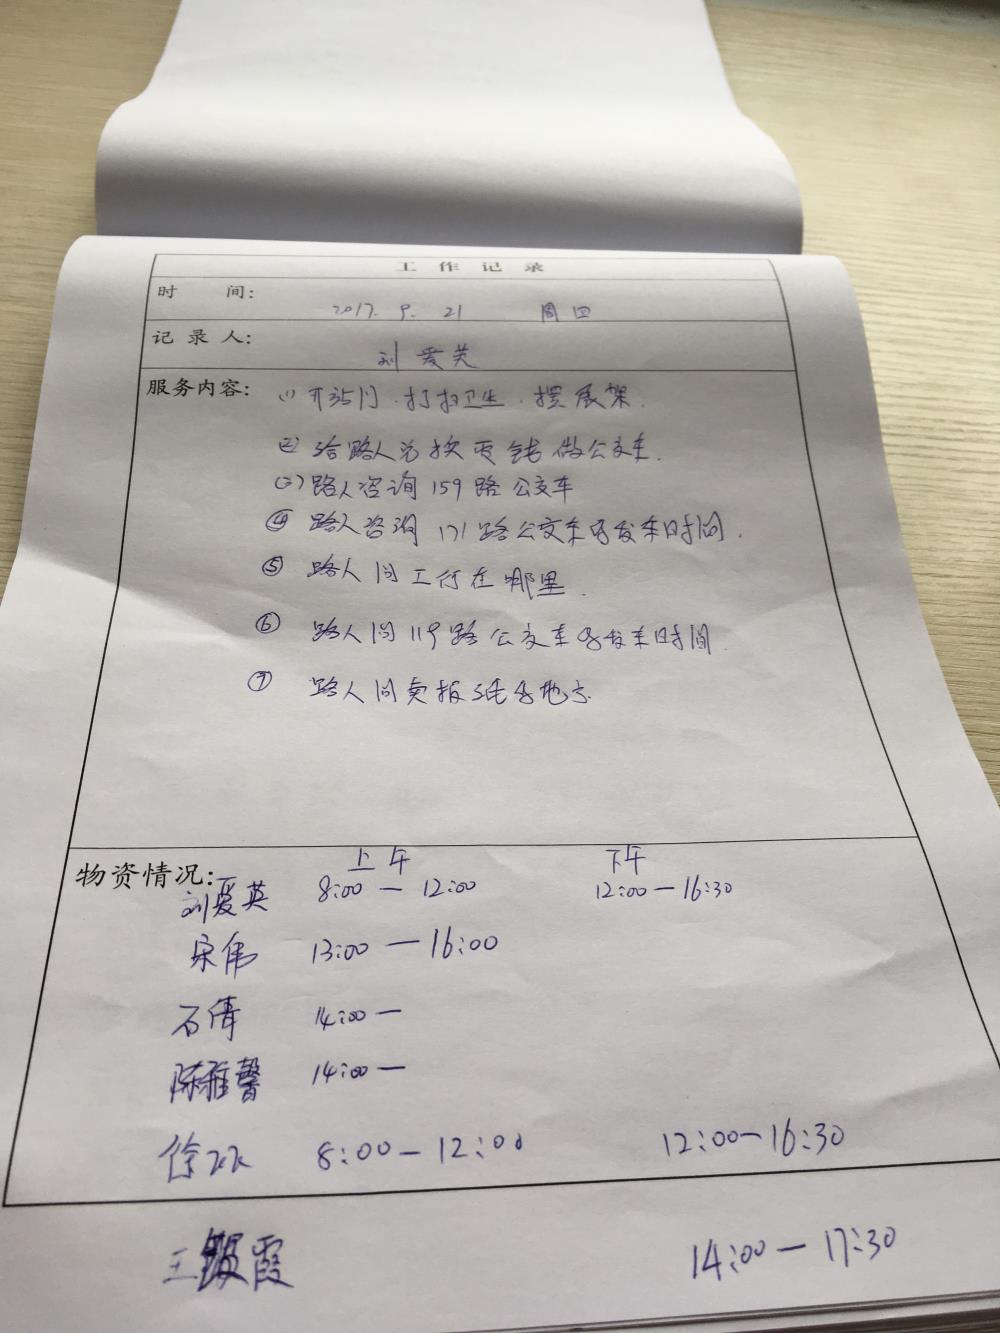 工作记录
时 间: 2017. 9. 21 周四
记录人: 刘爱英
服务内容: (1) 开站门.打扫卫生.摆展架.
(2) 给路人兑换零钱做公交车.
(3) 路人咨询159路公交车
④ 路人咨询171路公交车的发车时间.
⑤ 路人问工行在哪里.
⑥ 路人问119路公交车的发车时间.
⑦ 路人问卖报纸的地方
物资情况: 上午 下午
刘爱英 8:00 — 12:00 12:00 — 16:30
宋伟 13:00 — 16:00
石倩 14:00 —
陈雅馨 14:00 —
徐 8:00 — 12:00 12:00 — 16:30
王 霞 14:00 — 17:30